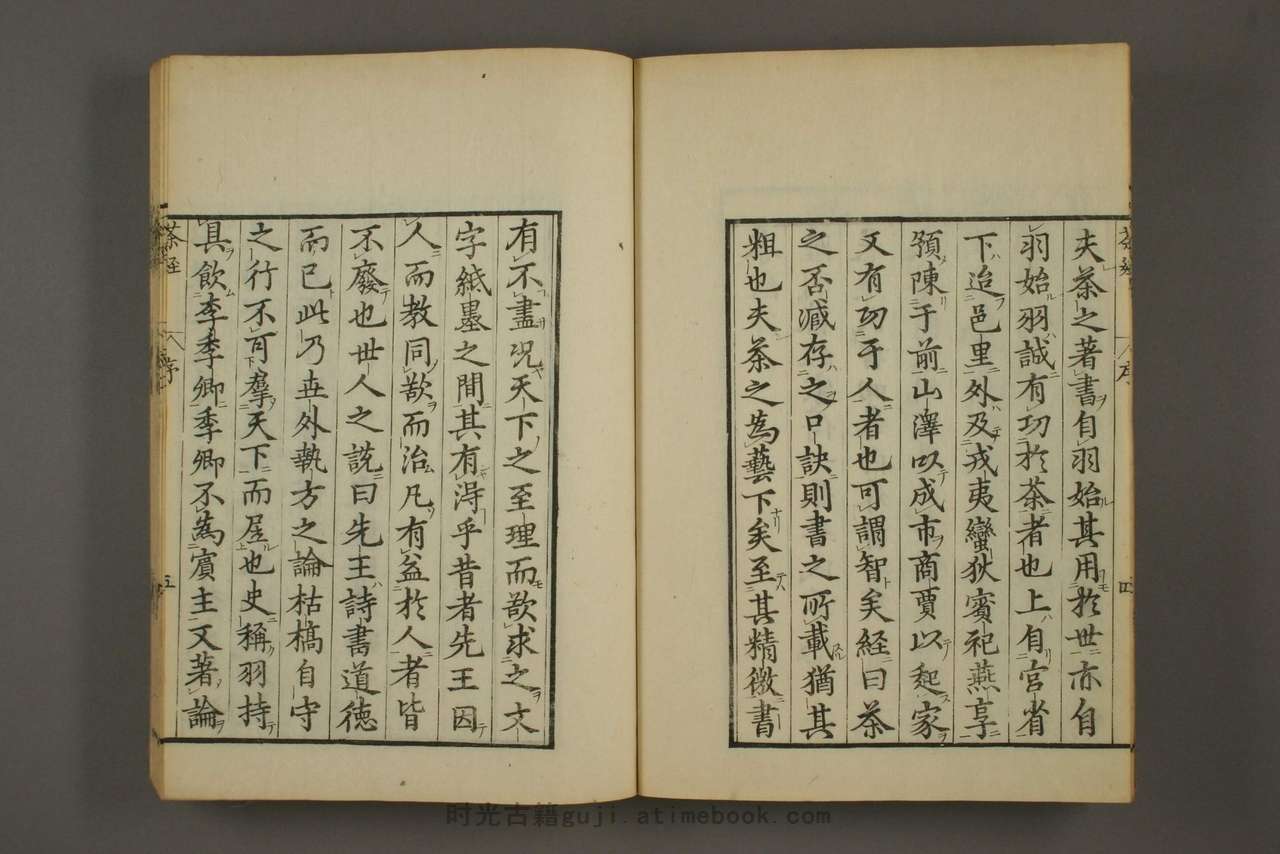 茶經 序 四
夫茶之著書自羽始其用於世亦自
羽始羽誠有功於茶者也上自宮省
下迨邑里外及戎夷蠻狄賓祀燕享
預陳于前山澤以成市商賈以起家
又有功于人者也可謂智矣經曰茶
之否臧存之口訣則書之所載猶其
粗也夫茶之為藝下矣至其精微書
有不盡況天下之至理而欲求之文
字紙墨之間其有得乎昔者先王因
人而教同欲而治凡有益於人者皆
不廢也世人之說曰先王詩書道德
而已此乃世外執方之論枯槁自守
之行不可羣天下而居也史稱羽持
具飲李季卿季卿不為賓主又著論
茶經 序 五
时光古籍guji.atimebook.com